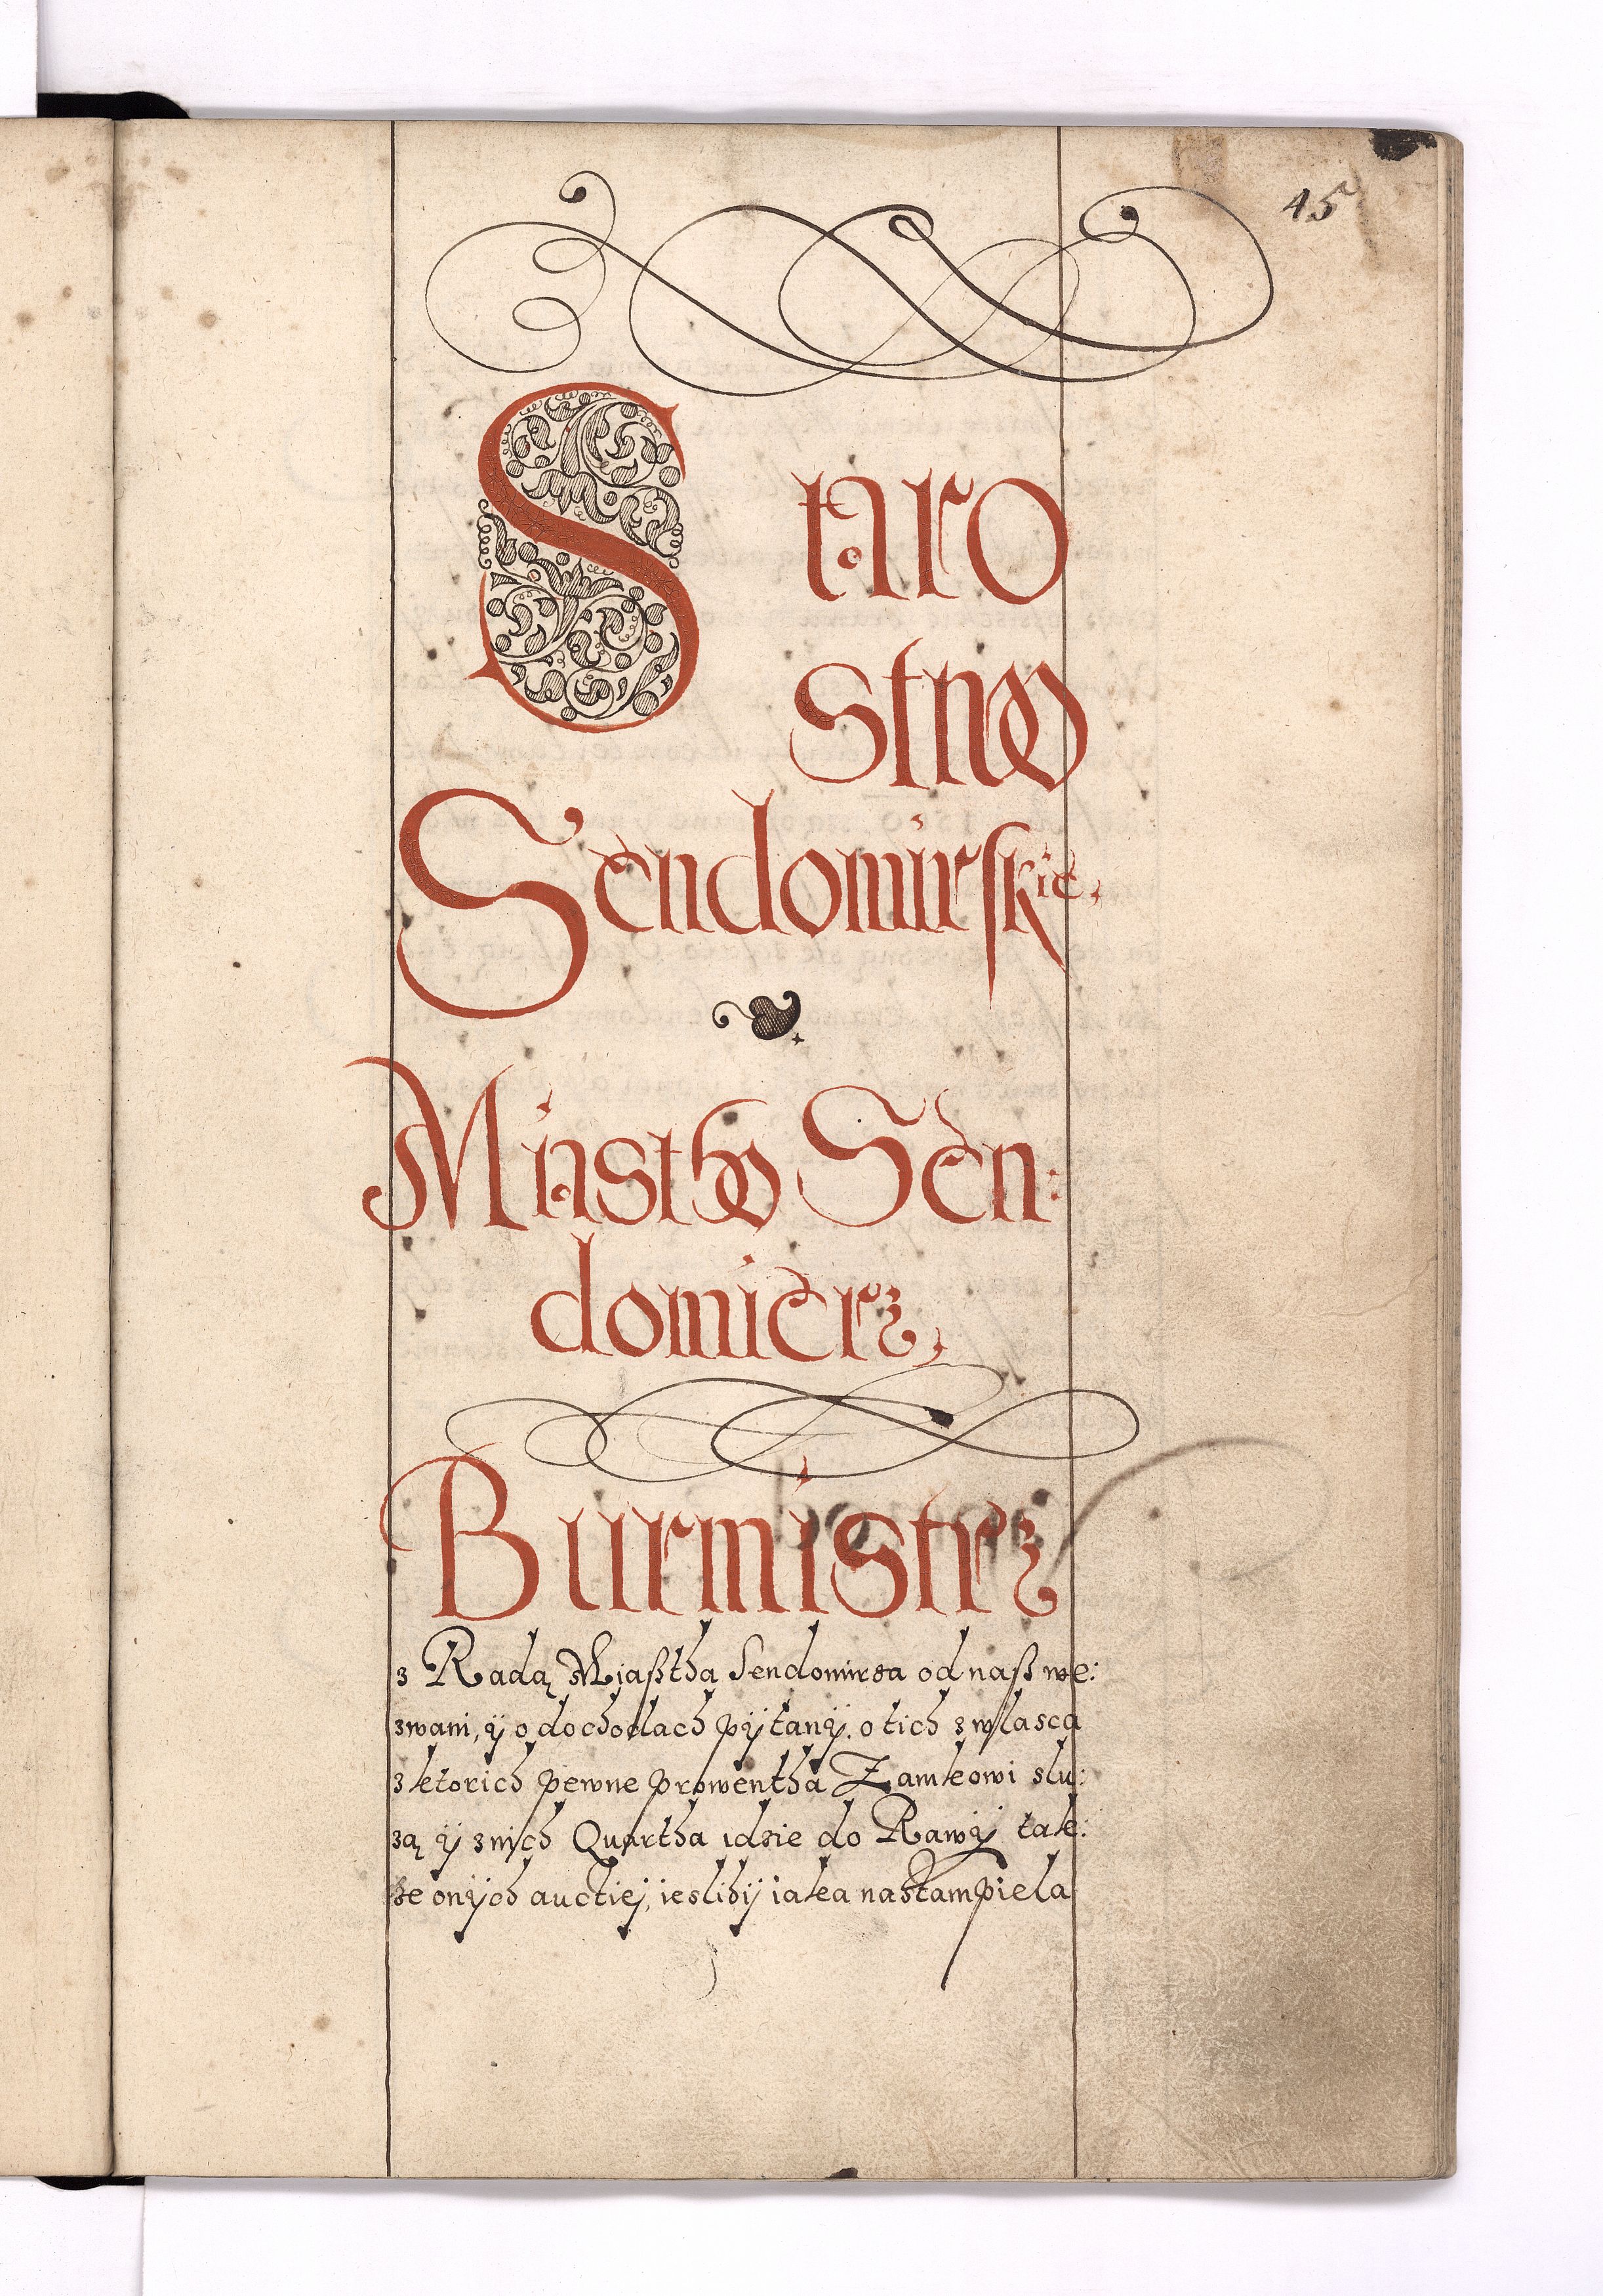 45
Staro
stwo
Sendomirskie,
Miastho Sen:
domierz,
Burmistrz
z Radą Miasstha Sendomirza od nass we:
zwani, ÿ o dochodach pÿtanÿ. o tich z wlasca
z ktorich pewne prowentha Zamkowi slu:
zą ÿ z nich Quartha idzie do Rawÿ tak:
ze onÿch auctiej, ieslibÿ iaka nastampiela